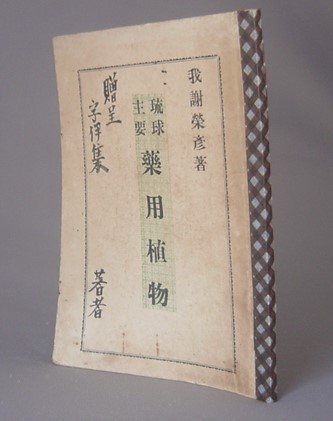 我謝榮彦著
琉球
主要
藥用植物
贈呈
著者